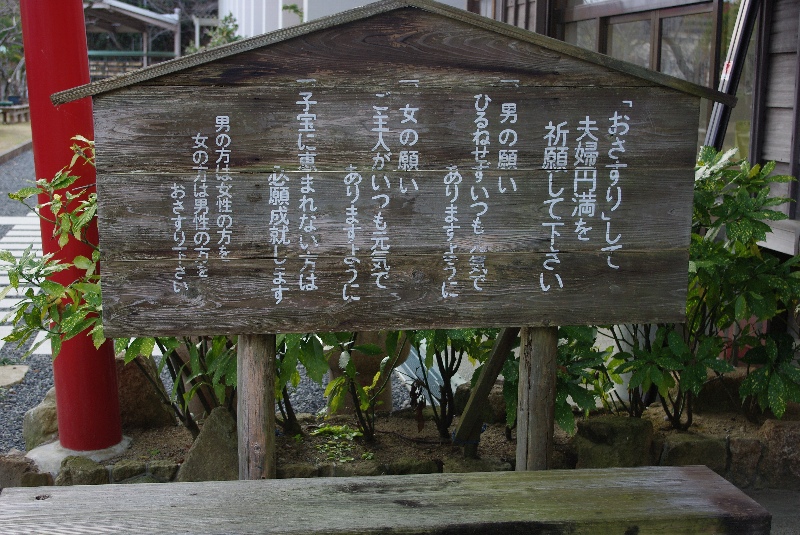 「おさすり」して
夫婦円満を
祈願して下さい
一 男の願い
ひるねせずいつも元気で
ありますように
一 女の願い
ご主人がいつも元気で
ありますように
一 子宝に恵まれない方は
必願成就します
男の方は女性の方を
女の方は男性の方を
おさすり下さい